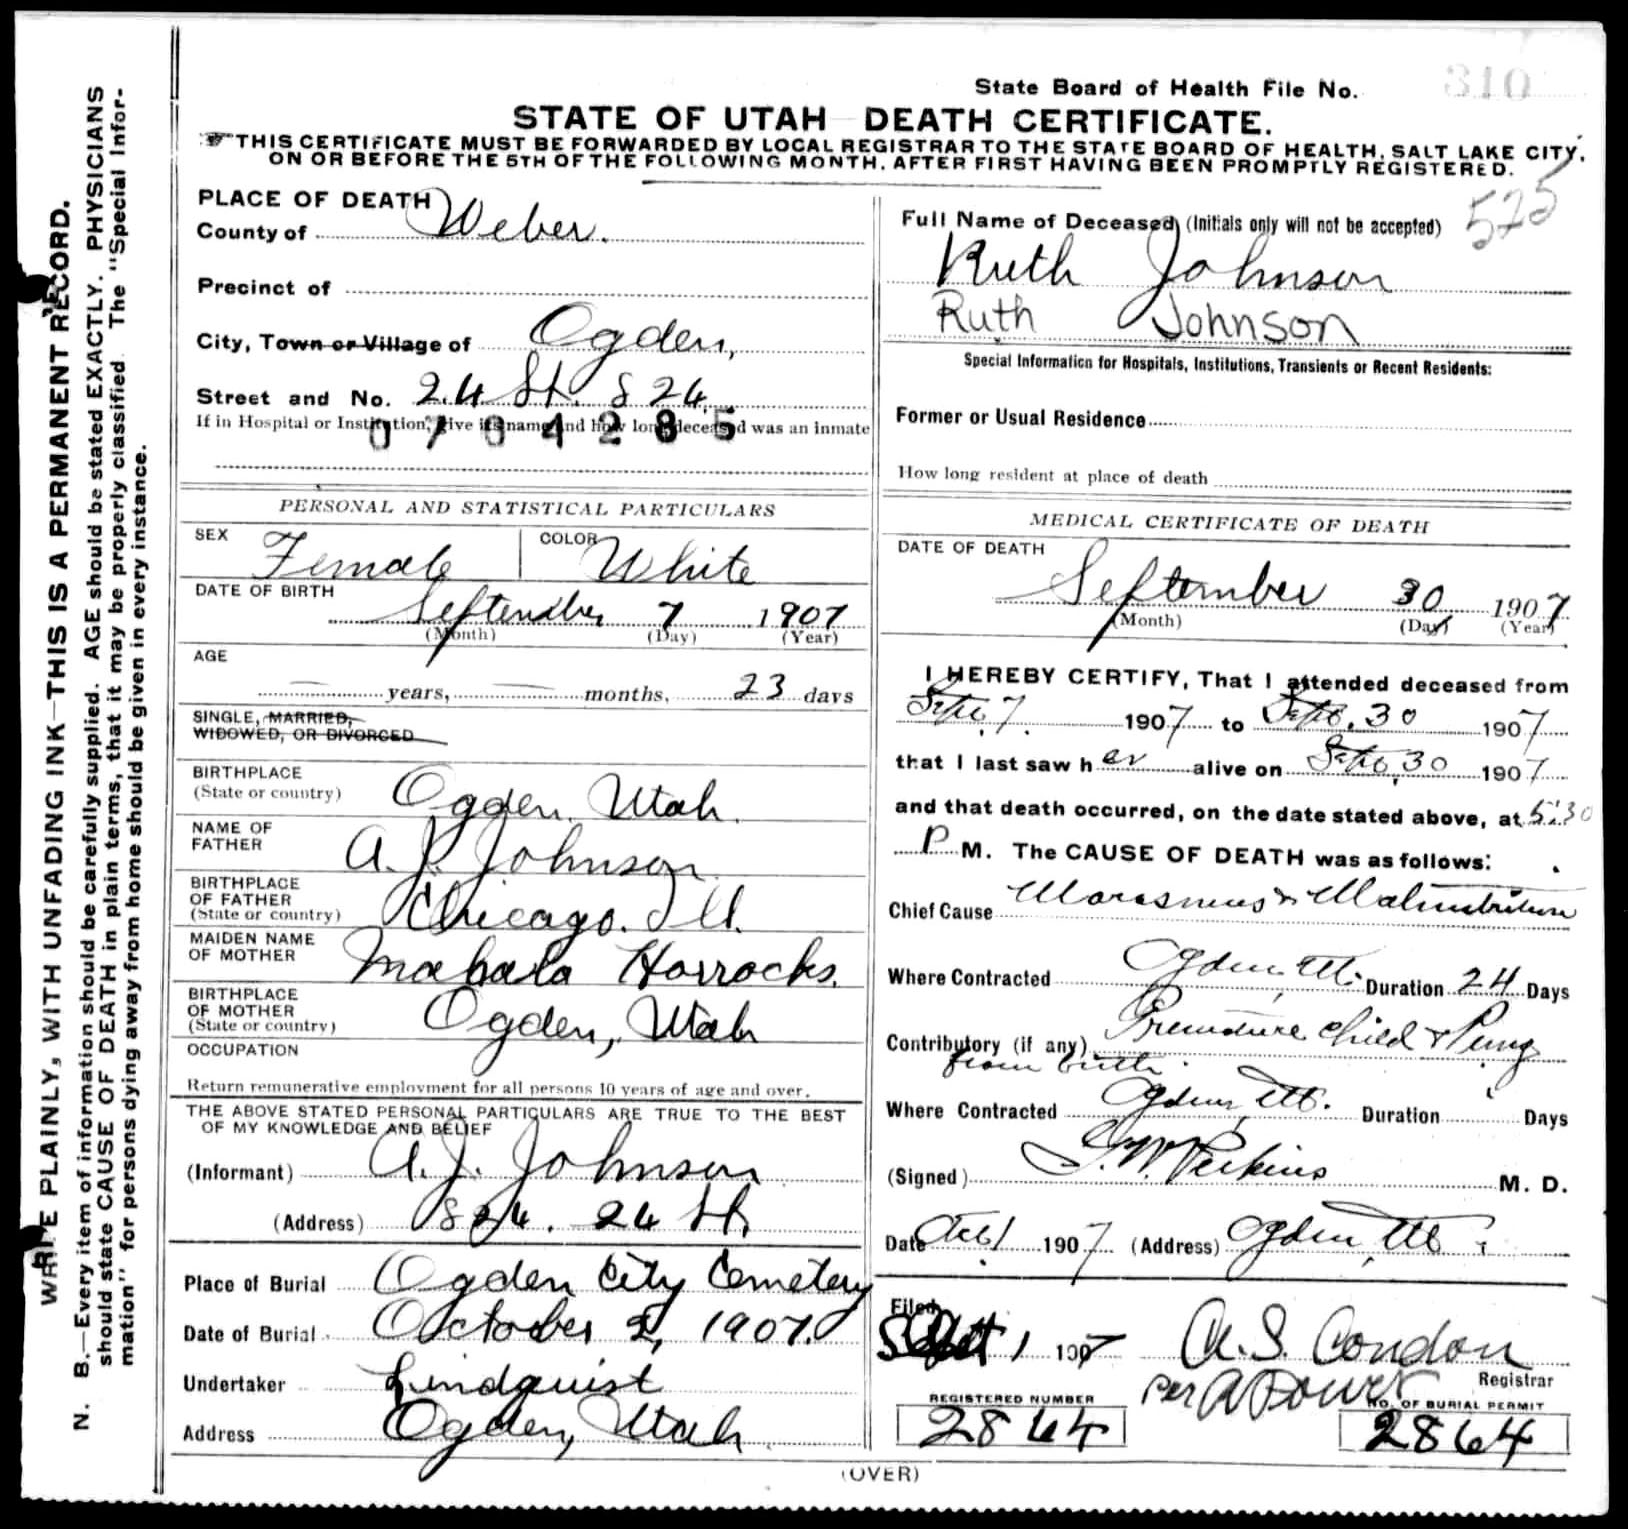 State Board of Health File No. 310
STATE OF UTAH DEATH CERTIFICATE.
THIS CERTIFICATE MUST BE FORWARDED BY LOCAL REGISTRAR TO THE STATE BOARD OF HEALTH, SALT LAKE CITY,
ON OR BEFORE THE 5TH OF THE FOLLOWING MONTH, AFTER FIRST HAVING BEEN PROMPTLY REGISTERED.
WRITE PLAINLY, WITH UNFADING INK—THIS IS A PERMANENT RECORD.
N. B.—Every item of information should be carefully supplied. AGE should be stated EXACTLY. PHYSICIANS
should state CAUSE OF DEATH in plain terms, that it may be properly classified. The "Special Infor-
mation" for persons dying away from home should be given in every instance.
PLACE OF DEATH
County of Weber.
Precinct of
City, Town or Village of Ogden,
Street and No. 24 St. 824
If in Hospital or Institution, give its name and how long deceased was an inmate
0704285
PERSONAL AND STATISTICAL PARTICULARS
SEX Female COLOR White
DATE OF BIRTH
September 7 1907
(Month) (Day) (Year)
AGE
— years, — months, 23 days
SINGLE, MARRIED,
WIDOWED, OR DIVORCED
BIRTHPLACE
(State or country) Ogden, Utah.
NAME OF
FATHER A. J. Johnson
BIRTHPLACE
OF FATHER
(State or country) Chicago. Ill.
MAIDEN NAME
OF MOTHER Mahala Horrocks.
BIRTHPLACE
OF MOTHER
(State or country) Ogden, Utah
OCCUPATION
Return remunerative employment for all persons 10 years of age and over.
THE ABOVE STATED PERSONAL PARTICULARS ARE TRUE TO THE BEST
OF MY KNOWLEDGE AND BELIEF
(Informant) A. J. Johnson
(Address) 824. 24 St.
Place of Burial Ogden City Cemetery
Date of Burial October 2, 1907.
Undertaker Lindquist
Address Ogden, Utah
Full Name of Deceased (Initials only will not be accepted) 525
Ruth Johnson
Ruth Johnson
Special Information for Hospitals, Institutions, Transients or Recent Residents:
Former or Usual Residence
How long resident at place of death
MEDICAL CERTIFICATE OF DEATH
DATE OF DEATH
September 30 1907
(Month) (Day) (Year)
I HEREBY CERTIFY, That I attended deceased from
Sept. 7 1907 to Sept. 30 1907
that I last saw her alive on Sept. 30 1907
and that death occurred, on the date stated above, at 5:30
P M. The CAUSE OF DEATH was as follows:
Chief Cause Marasmus & Malnutrition
Where Contracted Ogden, Ut. Duration 24 Days
Contributory (if any) Premature child & Puny
from birth.
Where Contracted Ogden, Ut. Duration Days
(Signed) Perkins M. D.
Date Oct 1 1907 (Address) Ogden, Ut.
Filed Oct 1 1907 A. S. Condon
Registrar
per
REGISTERED NUMBER
2864
NO. OF BURIAL PERMIT
2864
(OVER)